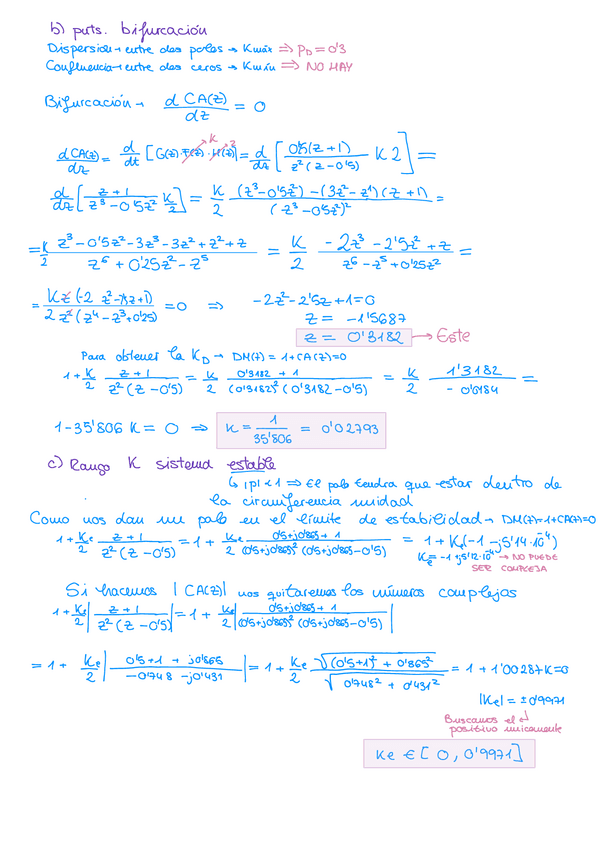 b) puts. bifurcación
Dispersion → entre dos polos → Kmáx ⇒ PD = 0'3
Confluencia → entre dos ceros → Kmín ⇒ NO HAY
Bifurcación → d CA(z) / dz = 0
d CA(z) / dz = d/dt [G(z)·F(z)·H(z)] = d/dz [ 0'5(z+1) / z²(z-0'5) K 2 ] =
K 2
d/dz [ z+1 / z³-0'5z² K/2 ] = K/2 (z³-0'5z²) - (3z²-z¹)(z+1) / (z³-0'5z²)² =
= K/2 z³-0'5z²-3z³-3z²+z²+z / z⁶+0'25z²-z⁵ = K/2 -2z³-2'5z²+z / z⁶-z⁵+0'25z² =
= Kz(-2z²-1'5z+1) / 2z²(z⁴-z³+0'25) = 0 ⇒ -2z²-2'5z+1=0
z = -1'5687
z = 0'3182 → Este
Para obtener la KD → DM(z) = 1+CA(z)=0
1+K/2 z+1 / z²(z-0'5) = K/2 0'3182+1 / (0'3182)²(0'3182-0'5) = K/2 1'3182 / -0'0184 =
1-35'806 K = 0 ⇒ K = 1/35'806 = 0'02793
c) Rango K sistema estable
↳ |p|<1 ⇒ El polo tendra que estar dentro de
la circunferencia unidad
Como nos dan un polo en el límite de estabilidad → DM(z)=1+CA(z)=0
1+Ke/2 z+1 / z²(z-0'5) = 1+ Ke/2 0'5+j0'865+1 / (0'5+j0'865)²(0'5+j0'865-0'5) = 1+Ke(-1-j5'14·10⁻⁴)
Ke = -1+j5'12·10⁻⁴ → NO PUEDE
SER COMPLEJA
Si hacemos |CA(z)| nos quitaremos los números complejos
1+Ke/2 |z+1 / z²(z-0'5)| = 1+ Ke/2 |0'5+j0'865+1 / (0'5+j0'865)²(0'5+j0'865-0'5)|
= 1+ Ke/2 |0'5+1+j0'865 / -0'748-j0'431| = 1+ Ke/2 √(0'5+1)²+0'865² / √0'748²+0'431² = 1+1'0028+K=0
|Ke| = ±0'9971
Buscamos el
positivo unicamente
Ke ∈ [0, 0'9971]